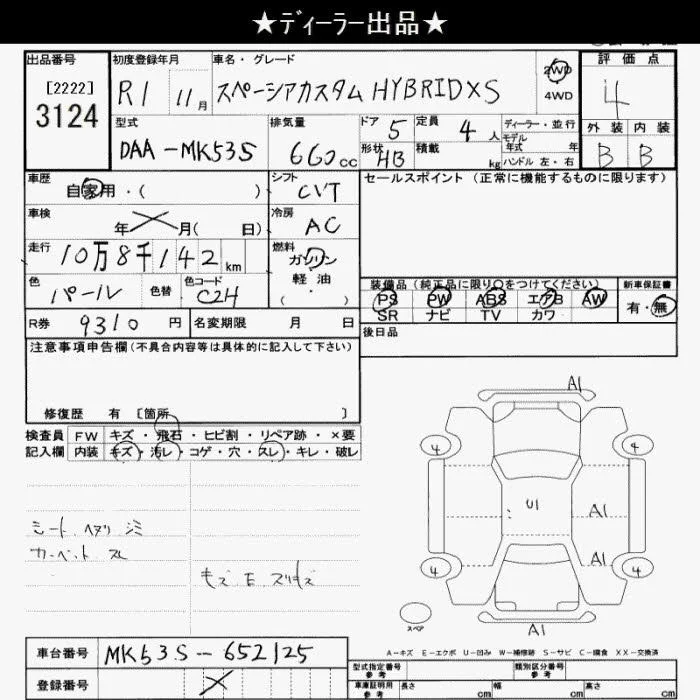 ★ディーラー出品★
出品番号 [2222] 3124
初度登録年月 R1 11月
車名・グレード スペーシアカスタム HYBRIDXS
2WD 4WD
評価点 4
外装 内装 B B
型式 DAA-MK53S
排気量 660cc
ドア 5 形状 HB
定員 4人 積載 kg
ディーラー・並行
モデル年式 年
ハンドル 左・右
車歴 自家用・( )
シフト CVT
セールスポイント (正常に機能するものに限ります)
車検 年 月( 日)
冷房 AC
走行 10万8千142km
燃料 ガソリン 軽油 ( ・ )
色 パール 色替 色コード C2H
装備品(純正品に限り○をつけてください)
PS PW ABS エアB AW
SR ナビ TV カワ
新車保証書 有・無
R券 9310円 名変期限 月 日
後日品
注意事項申告欄(不具合内容等は具体的に記入して下さい)
修復歴 有 [箇所 ]
検査員 FW キズ・飛石・ヒビ割・リペア跡・×要
記入欄 内装 キズ・汚レ・コゲ・穴・スレ・キレ・破レ
シート ヘタリ シミ
カーペット スレ
キズ E スリキズ
A1
4 4
U1 A1
A1
4 4
スペア
A1
A-キズ E-エクボ U-凹み W-補修跡 S-サビ C-腐食 XX-交換済
車台番号 MK53S-652125
登録番号
型式指定番号 参考 類別区分番号 参考
車庫証明用 参考 長さ cm 幅 cm 高さ cm